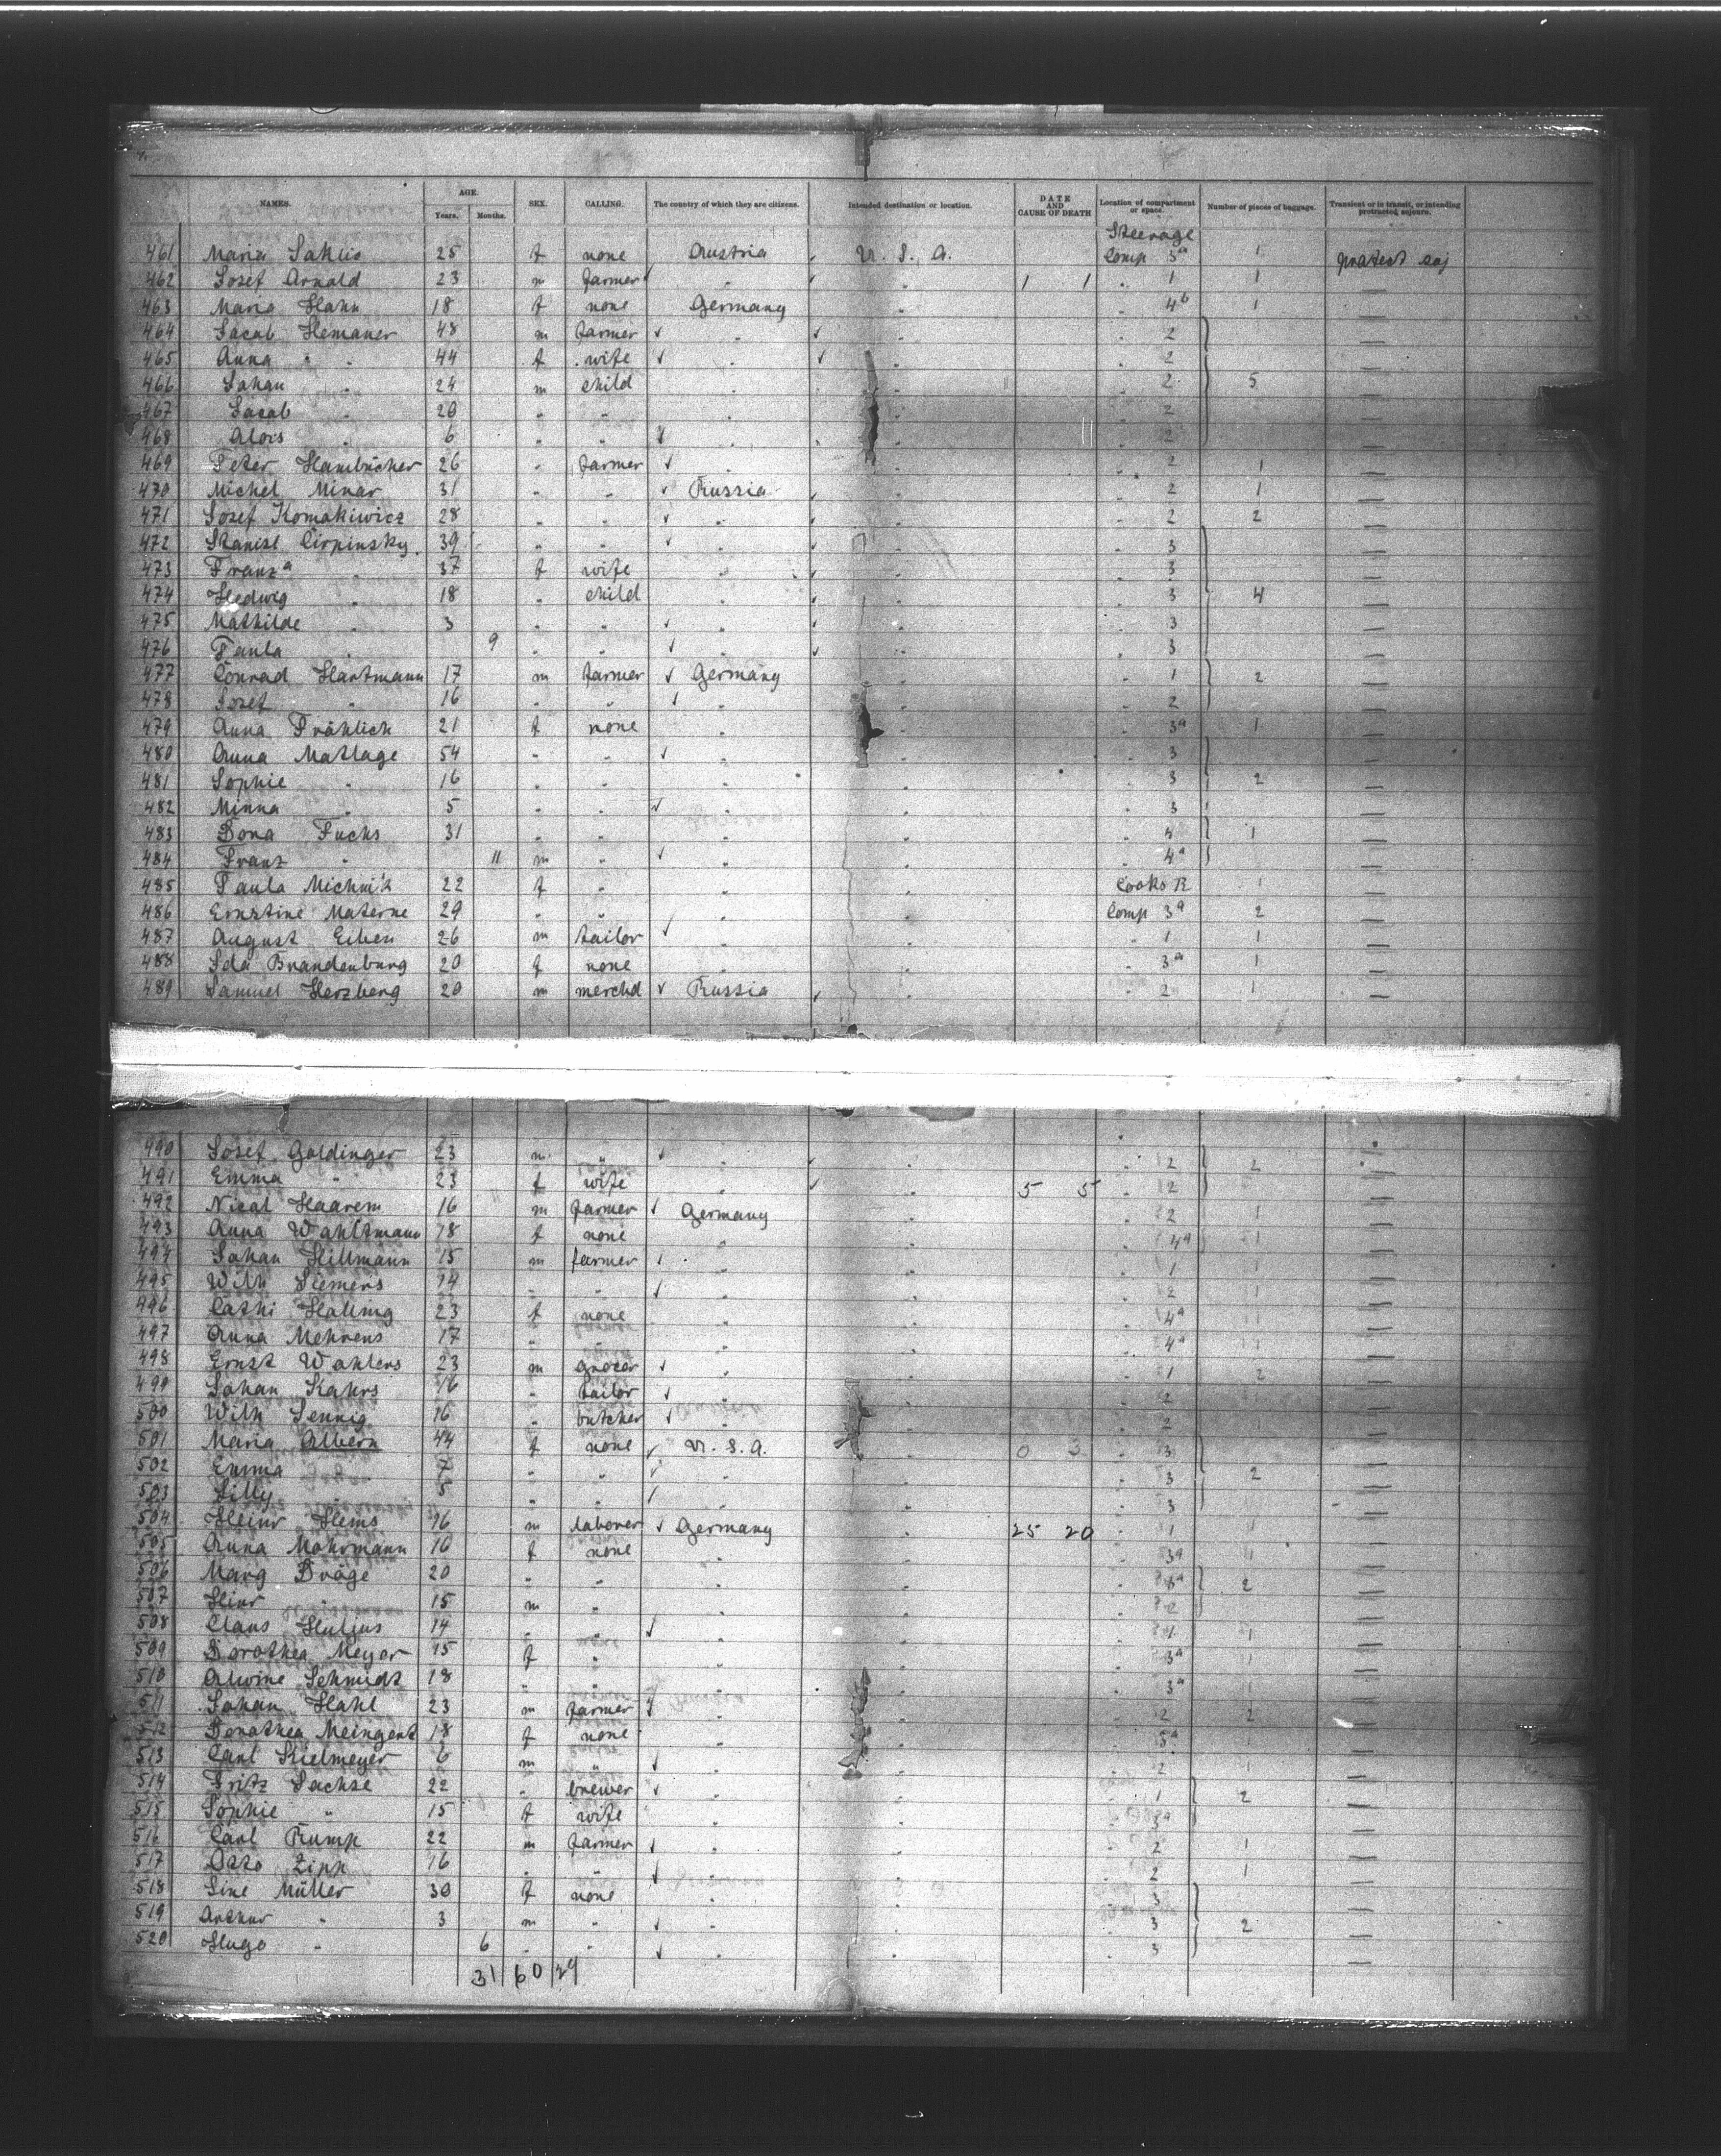 NAMES. AGE. Years. Months. SEX. CALLING. The country of which they are citizens. Intended destination or location. DATE AND CAUSE OF DEATH Location of compartment or space. Number of pieces of baggage. Transient or in transit, or intending protracted sojourn.
Steerage
461 Maria 25 f none Austria U. S. A. Comp 3a 1
462 Josef Arnold 23 m farmer " " 1 1 " 1 1 —
463 Maria Hahn 18 f none Germany " " 4b 1 —
464 Jacob Hemauer 48 m farmer " " " 2 —
465 Anna " 44 f wife " " " 2 —
466 Johan " 24 m child " " " 2 5 —
467 Jacob " 20 " " " " " 2 —
468 Alois " 6 " " " " " 2 —
469 Peter Hambücher 26 " farmer " " " 2 1 —
470 Michel Minar 31 " " Russia " " 2 1 —
471 Josef Komakiwicz 28 " " " " " 2 2 —
472 Stanisl Cirpinsky 39 " " " " " 3 —
473 Franza " 37 f wife " " " 3 —
474 Hedwig " 18 " child " " " 3 4 —
475 Mathilde " 3 " " " " " 3 —
476 Paula " 9 " " " " " 3 —
477 Conrad Hartmann 17 m farmer Germany " " 1 2 —
478 Josef " 16 " " " " " 2 —
479 Anna Fröhlich 21 f none " " " 3a 1 —
480 Anna Matlage 54 " " " " " 3 —
481 Sophie " 16 " " " " " 3 2 —
482 Minna " 5 " " " " " 3 —
483 Dora Fuchs 31 " " " " " 4 1 —
484 Franz " 11 m " " " " 4a —
485 Paula Michnik 22 f " " " Cooks R 1 —
486 Ernstine Materne 29 " " " " Comp 3a 2 —
487 August Eiben 26 m tailor " " " 1 1 —
488 Ida Brandenburg 20 f none " " " 3a 1 —
489 Samuel Herzberg 20 m merchd Russia " " 2 1 —
490 Josef Goldinger 23 m " " " " 2 2 —
491 Emma " 23 f wife " " 5 5 " 2 —
492 Nicol Haarem 16 m farmer Germany " " 2 1 —
493 Anna Wahltmann 18 f none " " " 4a 1 —
494 Johan Hillmann 15 m farmer " " " 1 1 —
495 Wilh Siemers 14 " " " " " 2 1 —
496 Cathi Halling 23 f none " " " 4a 1 —
497 Anna Mehrens 17 " " " " " 4a 1 —
498 Ernst Wahlers 23 m grocer " " " 1 2 —
499 Johan Kahrs 16 " tailor " " " 2 1 —
500 Wilh Jennig 16 " butcher " " " 2 1 —
501 Maria Albern 44 f none U. S. A. " 0 3 " 3 —
502 Emma " 7 " " " " " 3 2 —
503 Lilly " 5 " " " " " 3 —
504 Heinr Hems 16 m laborer Germany " 25 20 " 1 1 —
505 Anna Mohrmann 10 f none " " " 3a 1 —
506 Marg Dröge 20 " " " " " 3a 2 —
507 Heinr " 15 m " " " " 2 —
508 Claus Huljus 14 " " " " " 1 1 —
509 Dorothea Meyer 15 f " " " " 3a 1 —
510 Alwine Schmidt 18 " " " " " 3a 1 —
511 Johan Hahl 23 m farmer " " " 2 2 —
512 Dorothea Meingert 18 f none " " " 3a —
513 Carl Kielmeyer 6 m " " " " 2 1 —
514 Fritz Sachse 22 " brewer " " " 1 2 —
515 Sophie " 15 f wife " " " 3a —
516 Carl Rump 22 m farmer " " " 2 1 —
517 Otto Zipp 16 " " " " " 2 1 —
518 Line Müller 30 f none " " " 3 —
519 Arthur " 3 m " " " " 3 2 —
520 Hugo " 6 " " " " " 3 —
31 / 60 / 29